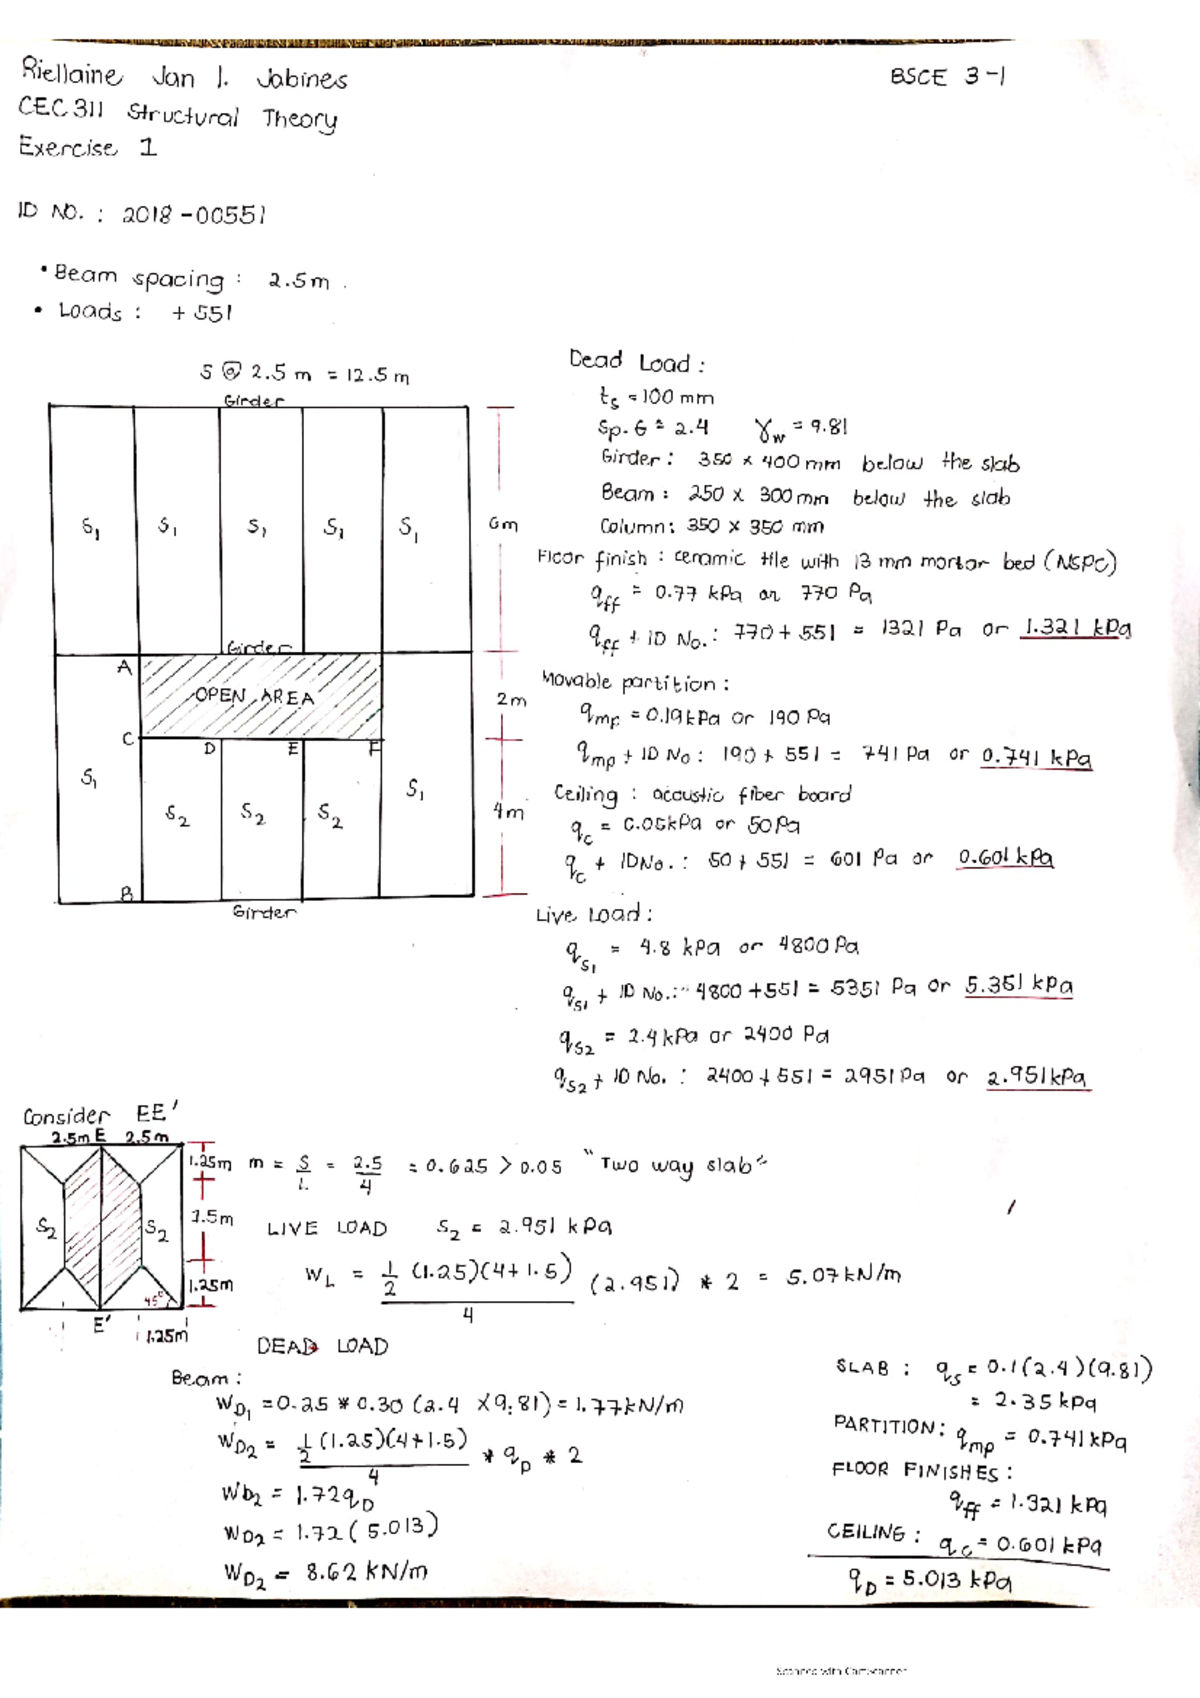 Riellaine Jan I. Jabines
BSCE 3-1
CEC 311 Structural Theory
Exercise 1
ID NO. : 2018-00551
• Beam spacing : 2.5m .
• Loads : + 551
5 @ 2.5 m = 12.5 m
Girder
S1 S1 S1 S1 S1
6m
Girder
A
OPEN AREA
2m
C D E F
S1
S2 S2 S2
S1
4m
B
Girder
Dead Load :
ts = 100 mm
Sp. G = 2.4 γw = 9.81
Girder : 350 x 400 mm below the slab
Beam : 250 x 300 mm below the slab
Column : 350 x 350 mm
Floor finish : ceramic tile with 13 mm mortar bed (NSPC)
qff = 0.77 kPa or 770 Pa
qff + ID No. : 770 + 551 = 1321 Pa or 1.321 kPa
Movable partition :
qmp = 0.19 kPa or 190 Pa
qmp + ID No : 190 + 551 = 741 Pa or 0.741 kPa
Ceiling : acoustic fiber board
qc = 0.05kPa or 50Pa
qc + ID No. : 50 + 551 = 601 Pa or 0.601 kPa
Live Load :
qS1 = 4.8 kPa or 4800 Pa
qS1 + ID No. : 4800 + 551 = 5351 Pa or 5.351 kPa
qS2 = 2.4 kPa or 2400 Pa
qS2 + ID No. : 2400 + 551 = 2951 Pa or 2.951kPa
Consider EE'
2.5m E 2.5m
1.25m
S2 S2
1.5m
1.25m
45°
E'
1.25m
m = S/L = 2.5/4 = 0.625 > 0.05 "Two way slab"
LIVE LOAD S2 = 2.951 kPa
WL = 1/2 (1.25)(4+1.5) / 4 (2.951) * 2 = 5.07 kN/m
DEAD LOAD
Beam :
WD1 = 0.25 * 0.30 (2.4 x 9.81) = 1.77 kN/m
WD2 = 1/2 (1.25)(4+1.5) / 4 * qD * 2
WD2 = 1.72qD
WD2 = 1.72 ( 5.013)
WD2 = 8.62 KN/m
SLAB : qs = 0.1(2.4)(9.81)
= 2.35 kPa
PARTITION : qmp = 0.741 kPa
FLOOR FINISHES :
qff = 1.321 kPa
CEILING : qc = 0.601 kPa
qD = 5.013 kPa
Scanned with CamScanner